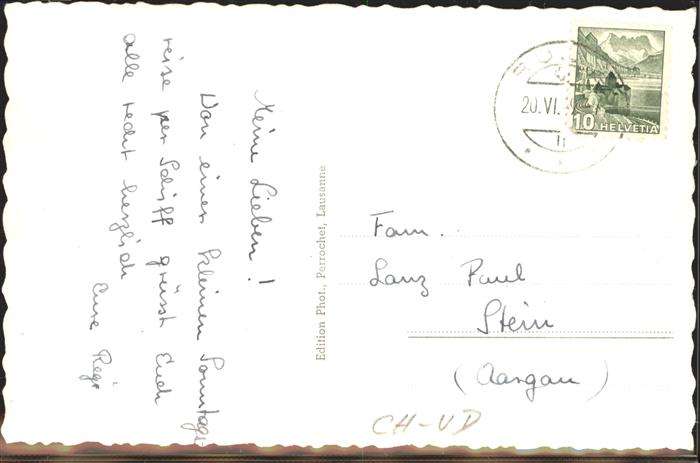 Meine Lieben!
Von einer kleinen Sonntags
reise per Schiff grüsst Euch
alle recht herzlich
Eure
Edition Phot., Perrochet, Lausanne
20.VI.
10 HELVETIA
Fam.
Lanz Paul
Stein
(Aargau)
CH-VD